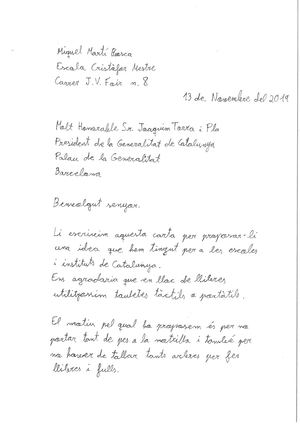 Miquel Martí Barca
Escala Cristòfor Mestre
Carrer J.V. Foix n. 8
13 de Novembre del 2019
Molt Honorable Sr. Joaquim Torra i Pla
President de la Generalitat de Catalunya
Palau de la Generalitat
Barcelona
Benvolgut senyor.
Li escrivim aquesta carta per proposar-li
una idea que hem tingut per a les escoles
i instituts de Catalunya.
Ens agradaria que en lloc de llibres
utilitzassim tauletes tàctils o portàtils.
El motiu pel qual ho proposem és per no
portar tant de pes a la motxilla i també per
no haver de tallar tants arbres per fer
llibres i fulls.